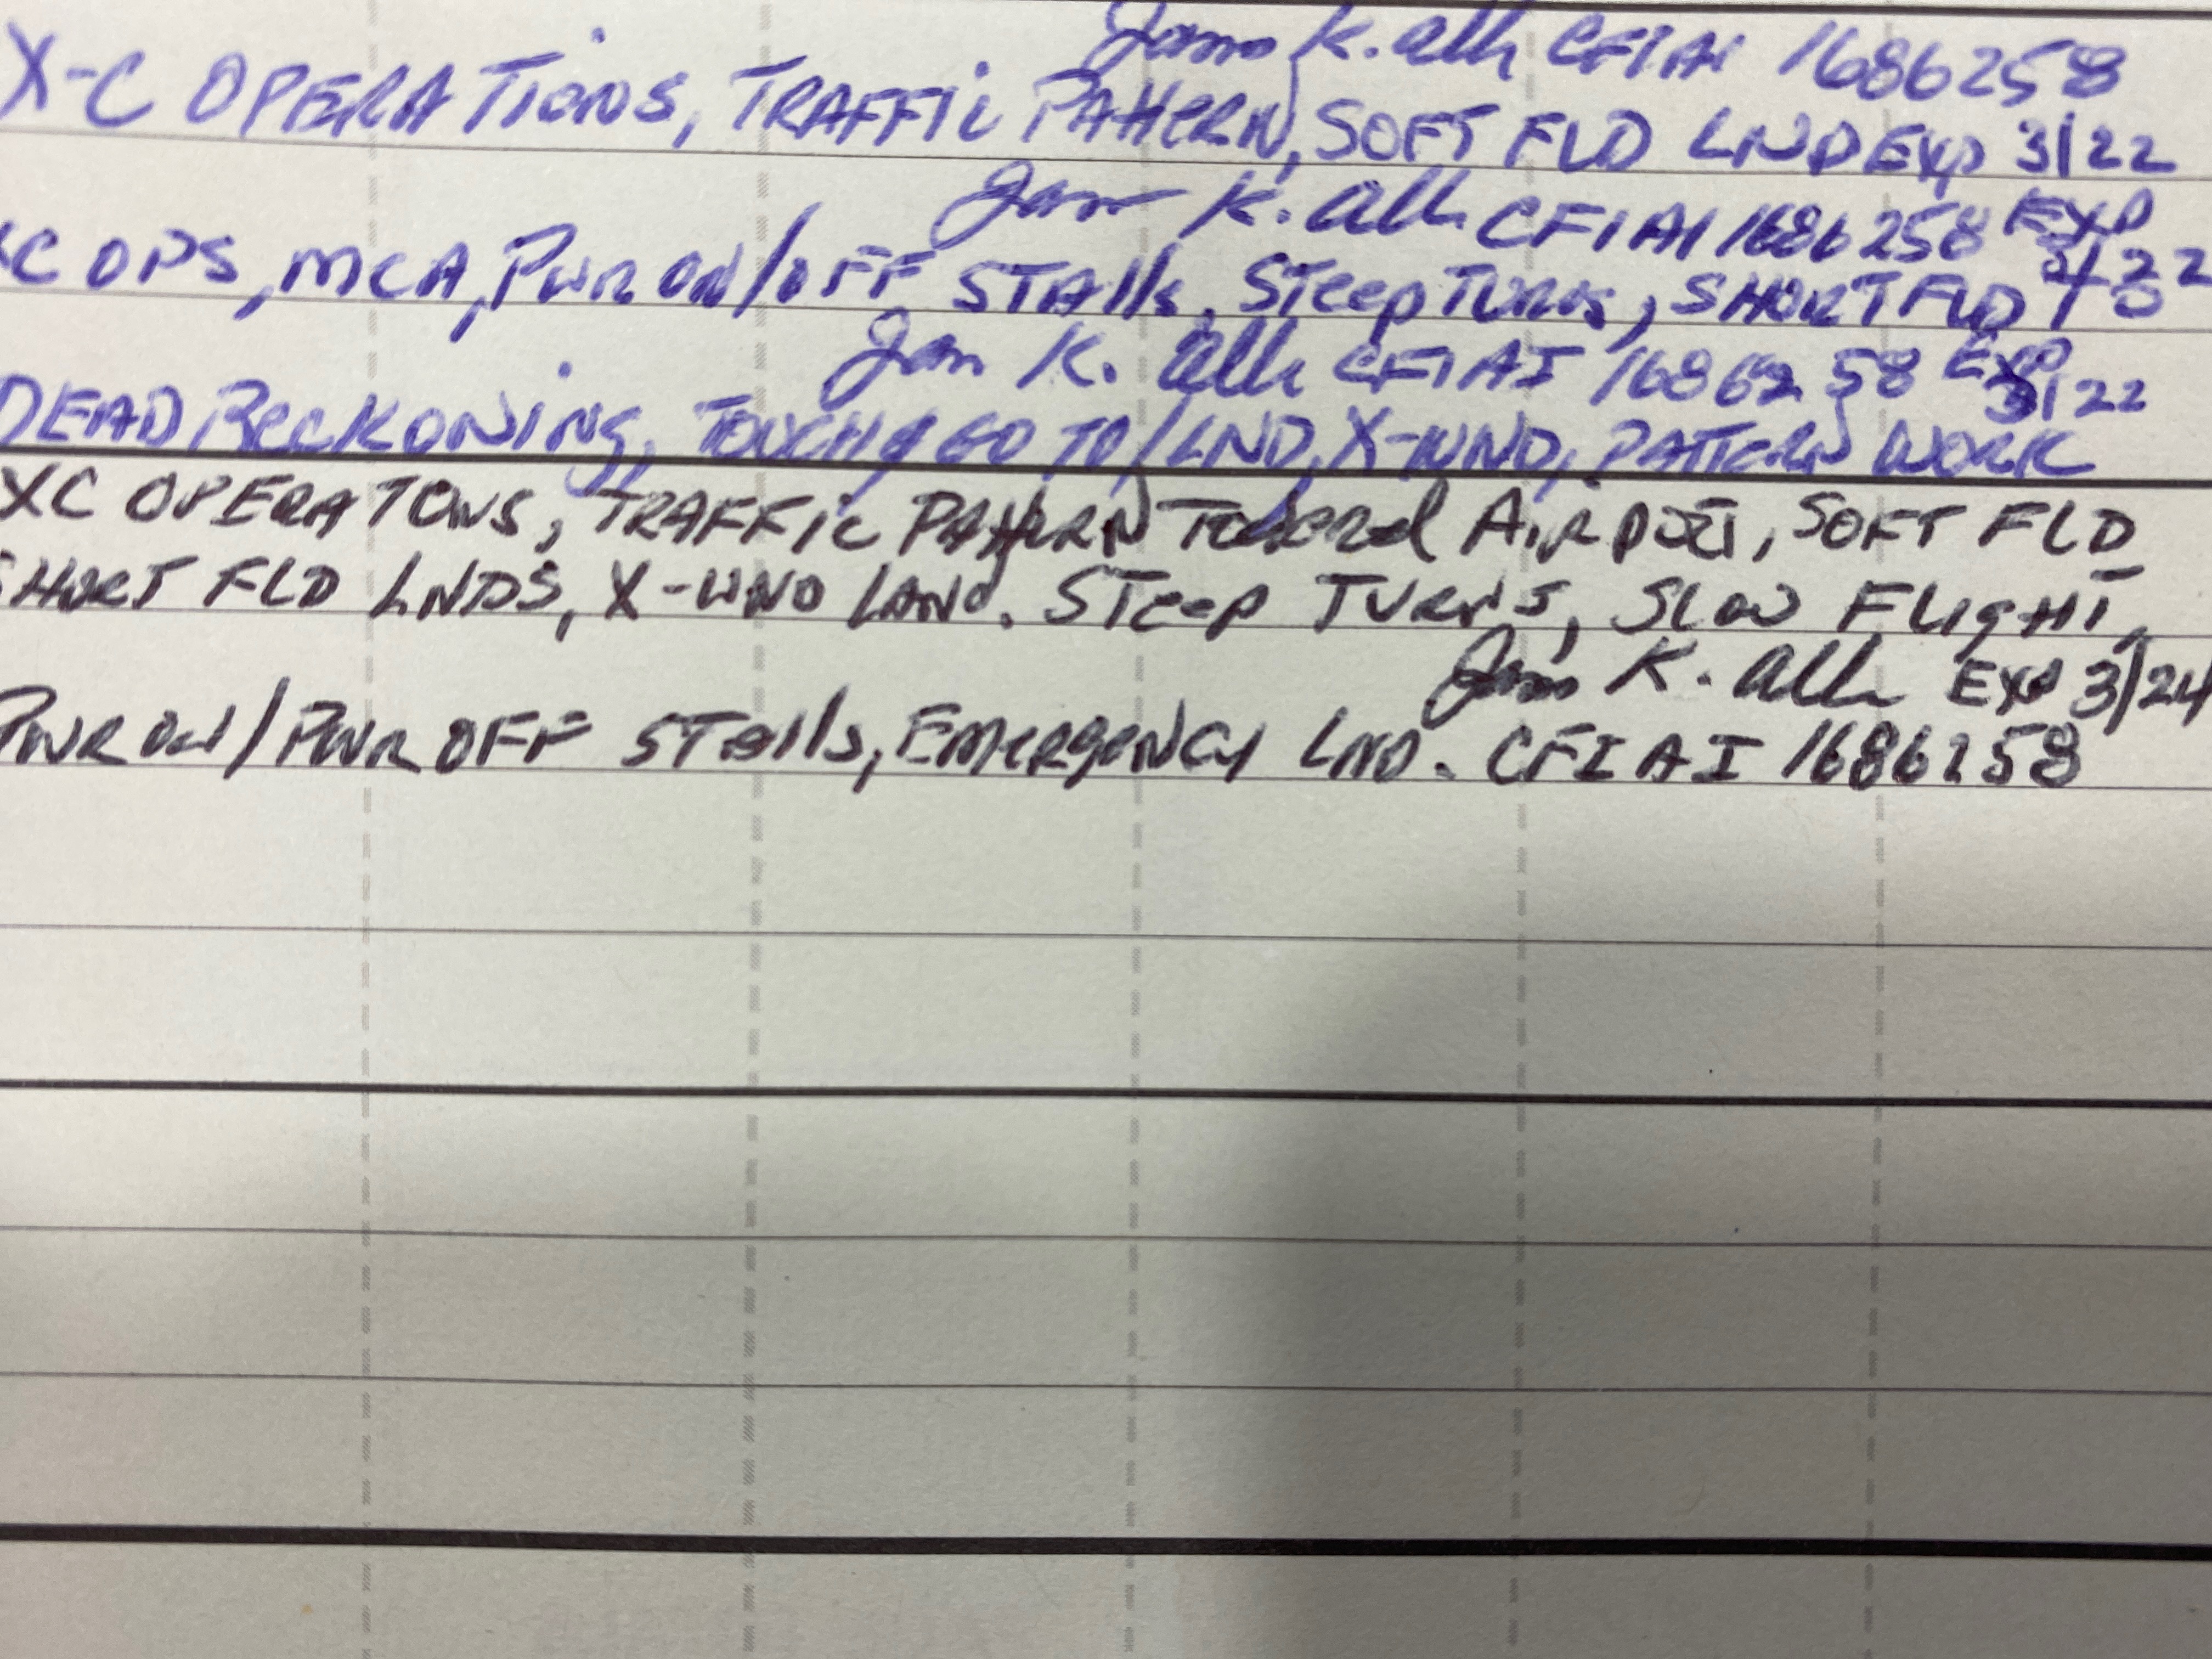 K. All CFIAI 1686258
X-C OPERATIONS, TRAFFIC PATTERN, SOFT FLD LND Exp 3/22
K. All CFIAI 1686258 EXP
C OPS, MCA, PWR ON/OFF STAlls, STeep TURNS, SHORT FLD T/O 3/22
K. All CFIAI 1686258 EXP 3/22
DEAD RecKONiNg, TOUCH & GO TO/LND, X-WND, PATTERN WORK
XC OPERATONS, TRAFFIC PATTERN Towered AIRPORT, SOFT FLD
SHORT FLD LNDS, X-WND LAND. STeep TURNS, SLOW FLigHT,
K. All EXP 3/24
PWR ON/PWR OFF STalls, EMergeNCy LND. CFIAI 1686258